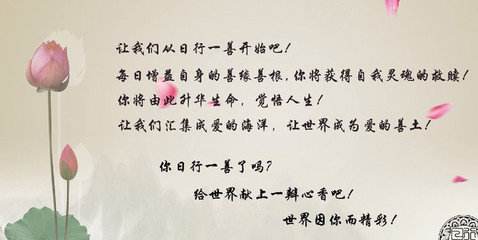 让我们从日行一善开始吧！
每日增益自身的善缘善根，你将获得自我灵魂的救赎！
你将由此升华生命，觉悟人生！
让我们汇集成爱的海洋，让世界成为爱的善土！
你日行一善了吗？
给世界献上一瓣心香吧！
世界因你而精彩！